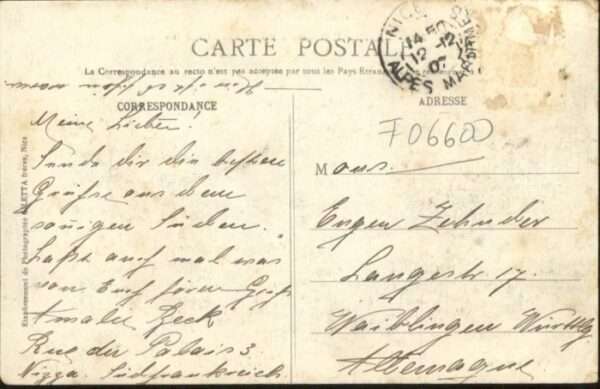 CARTE POSTALE
La Correspondance au recto n'est pas acceptée par tous les Pays Etran
CORRESPONDANCE
ADRESSE
NICE
14 50
12 -12
07
ALPES MARITIMES
F 06600
Meine Lieben!
Sende dir die besten
Grüße aus dem
sonnigen Süden.
Laßt auch mal was
von Euch hören Gruß
Amalie Beck
Rue du Palais 3
Nizza. Südfrankreich
Mons.
Eugen Zehnder
Langestr 17.
Waiblingen Württbg
Allemagne
Etablissement de Photographie GILETTA frères, Nice